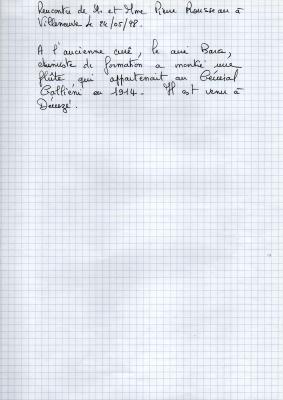 Rencontre de M. et Mme Pierre Rousseau à
Villeneuve le 24/05/98.
A l'ancienne cure, le curé Bara,
chimiste de formation a montré une
flûte qui appartenait au Général
Galliéni en 1914. Il est venu à